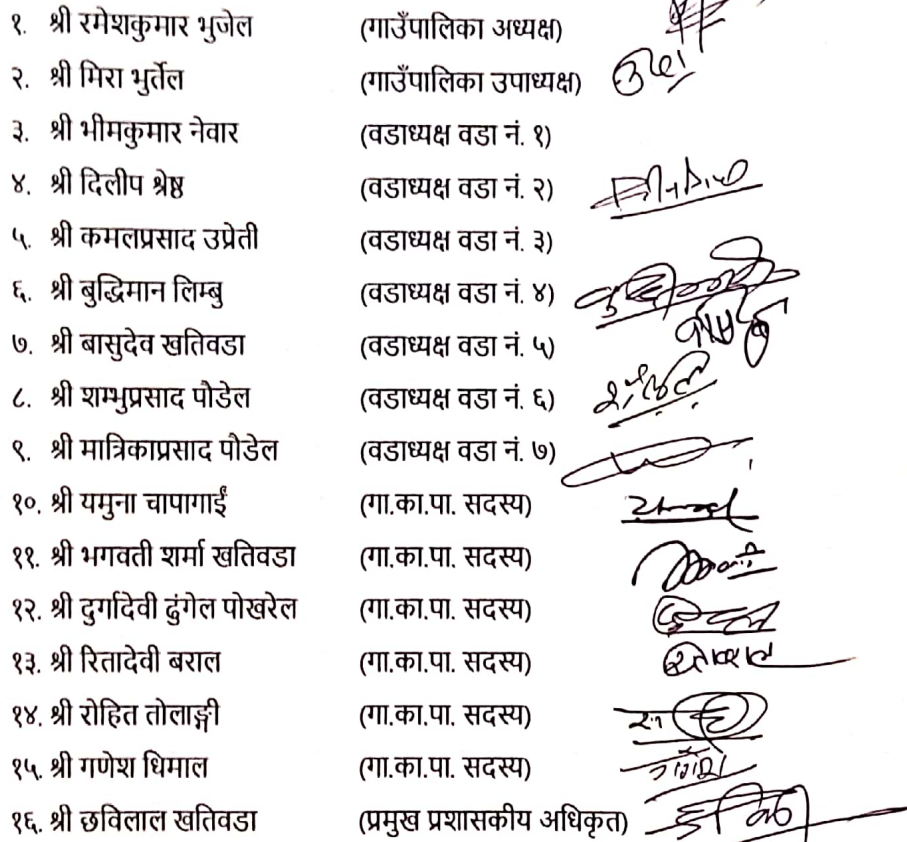 १. श्री रमेशकुमार भुजेल (गाउँपालिका अध्यक्ष)
२. श्री मिरा भुर्तेल (गाउँपालिका उपाध्यक्ष)
३. श्री भीमकुमार नेवार (वडाध्यक्ष वडा नं. १)
४. श्री दिलीप श्रेष्ठ (वडाध्यक्ष वडा नं. २)
५. श्री कमलप्रसाद उप्रेती (वडाध्यक्ष वडा नं. ३)
६. श्री बुद्धिमान लिम्बु (वडाध्यक्ष वडा नं. ४)
७. श्री बासुदेव खतिवडा (वडाध्यक्ष वडा नं. ५)
८. श्री शम्भुप्रसाद पौडेल (वडाध्यक्ष वडा नं. ६)
९. श्री मात्रिकाप्रसाद पौडेल (वडाध्यक्ष वडा नं. ७)
१०. श्री यमुना चापागाईं (गा.का.पा. सदस्य)
११. श्री भगवती शर्मा खतिवडा (गा.का.पा. सदस्य)
१२. श्री दुर्गादेवी ढुंगेल पोखरेल (गा.का.पा. सदस्य)
१३. श्री रितादेवी बराल (गा.का.पा. सदस्य)
१४. श्री रोहित तोलाङ्गी (गा.का.पा. सदस्य)
१५. श्री गणेश धिमाल (गा.का.पा. सदस्य)
१६. श्री छविलाल खतिवडा (प्रमुख प्रशासकीय अधिकृत)